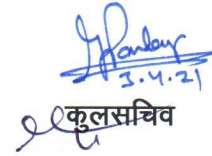 3.4.21
कुलसचिव